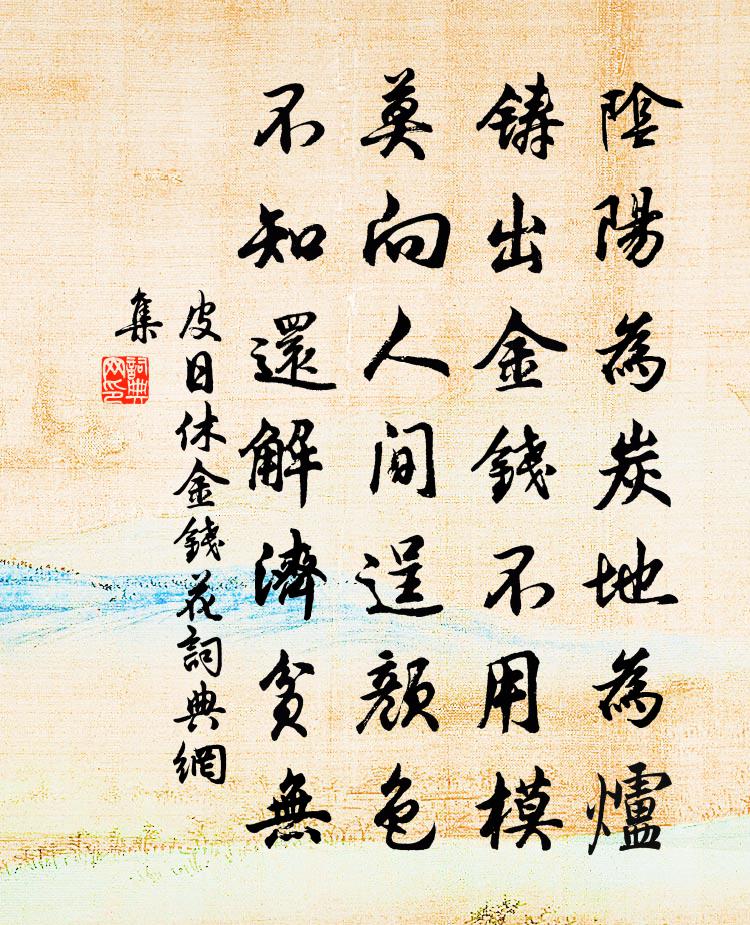 陰陽為炭地為爐
鑄出金錢不用模
莫向人間逞顏色
不知還解濟貧無
皮日休金錢花詞典網
集
詞典
网印